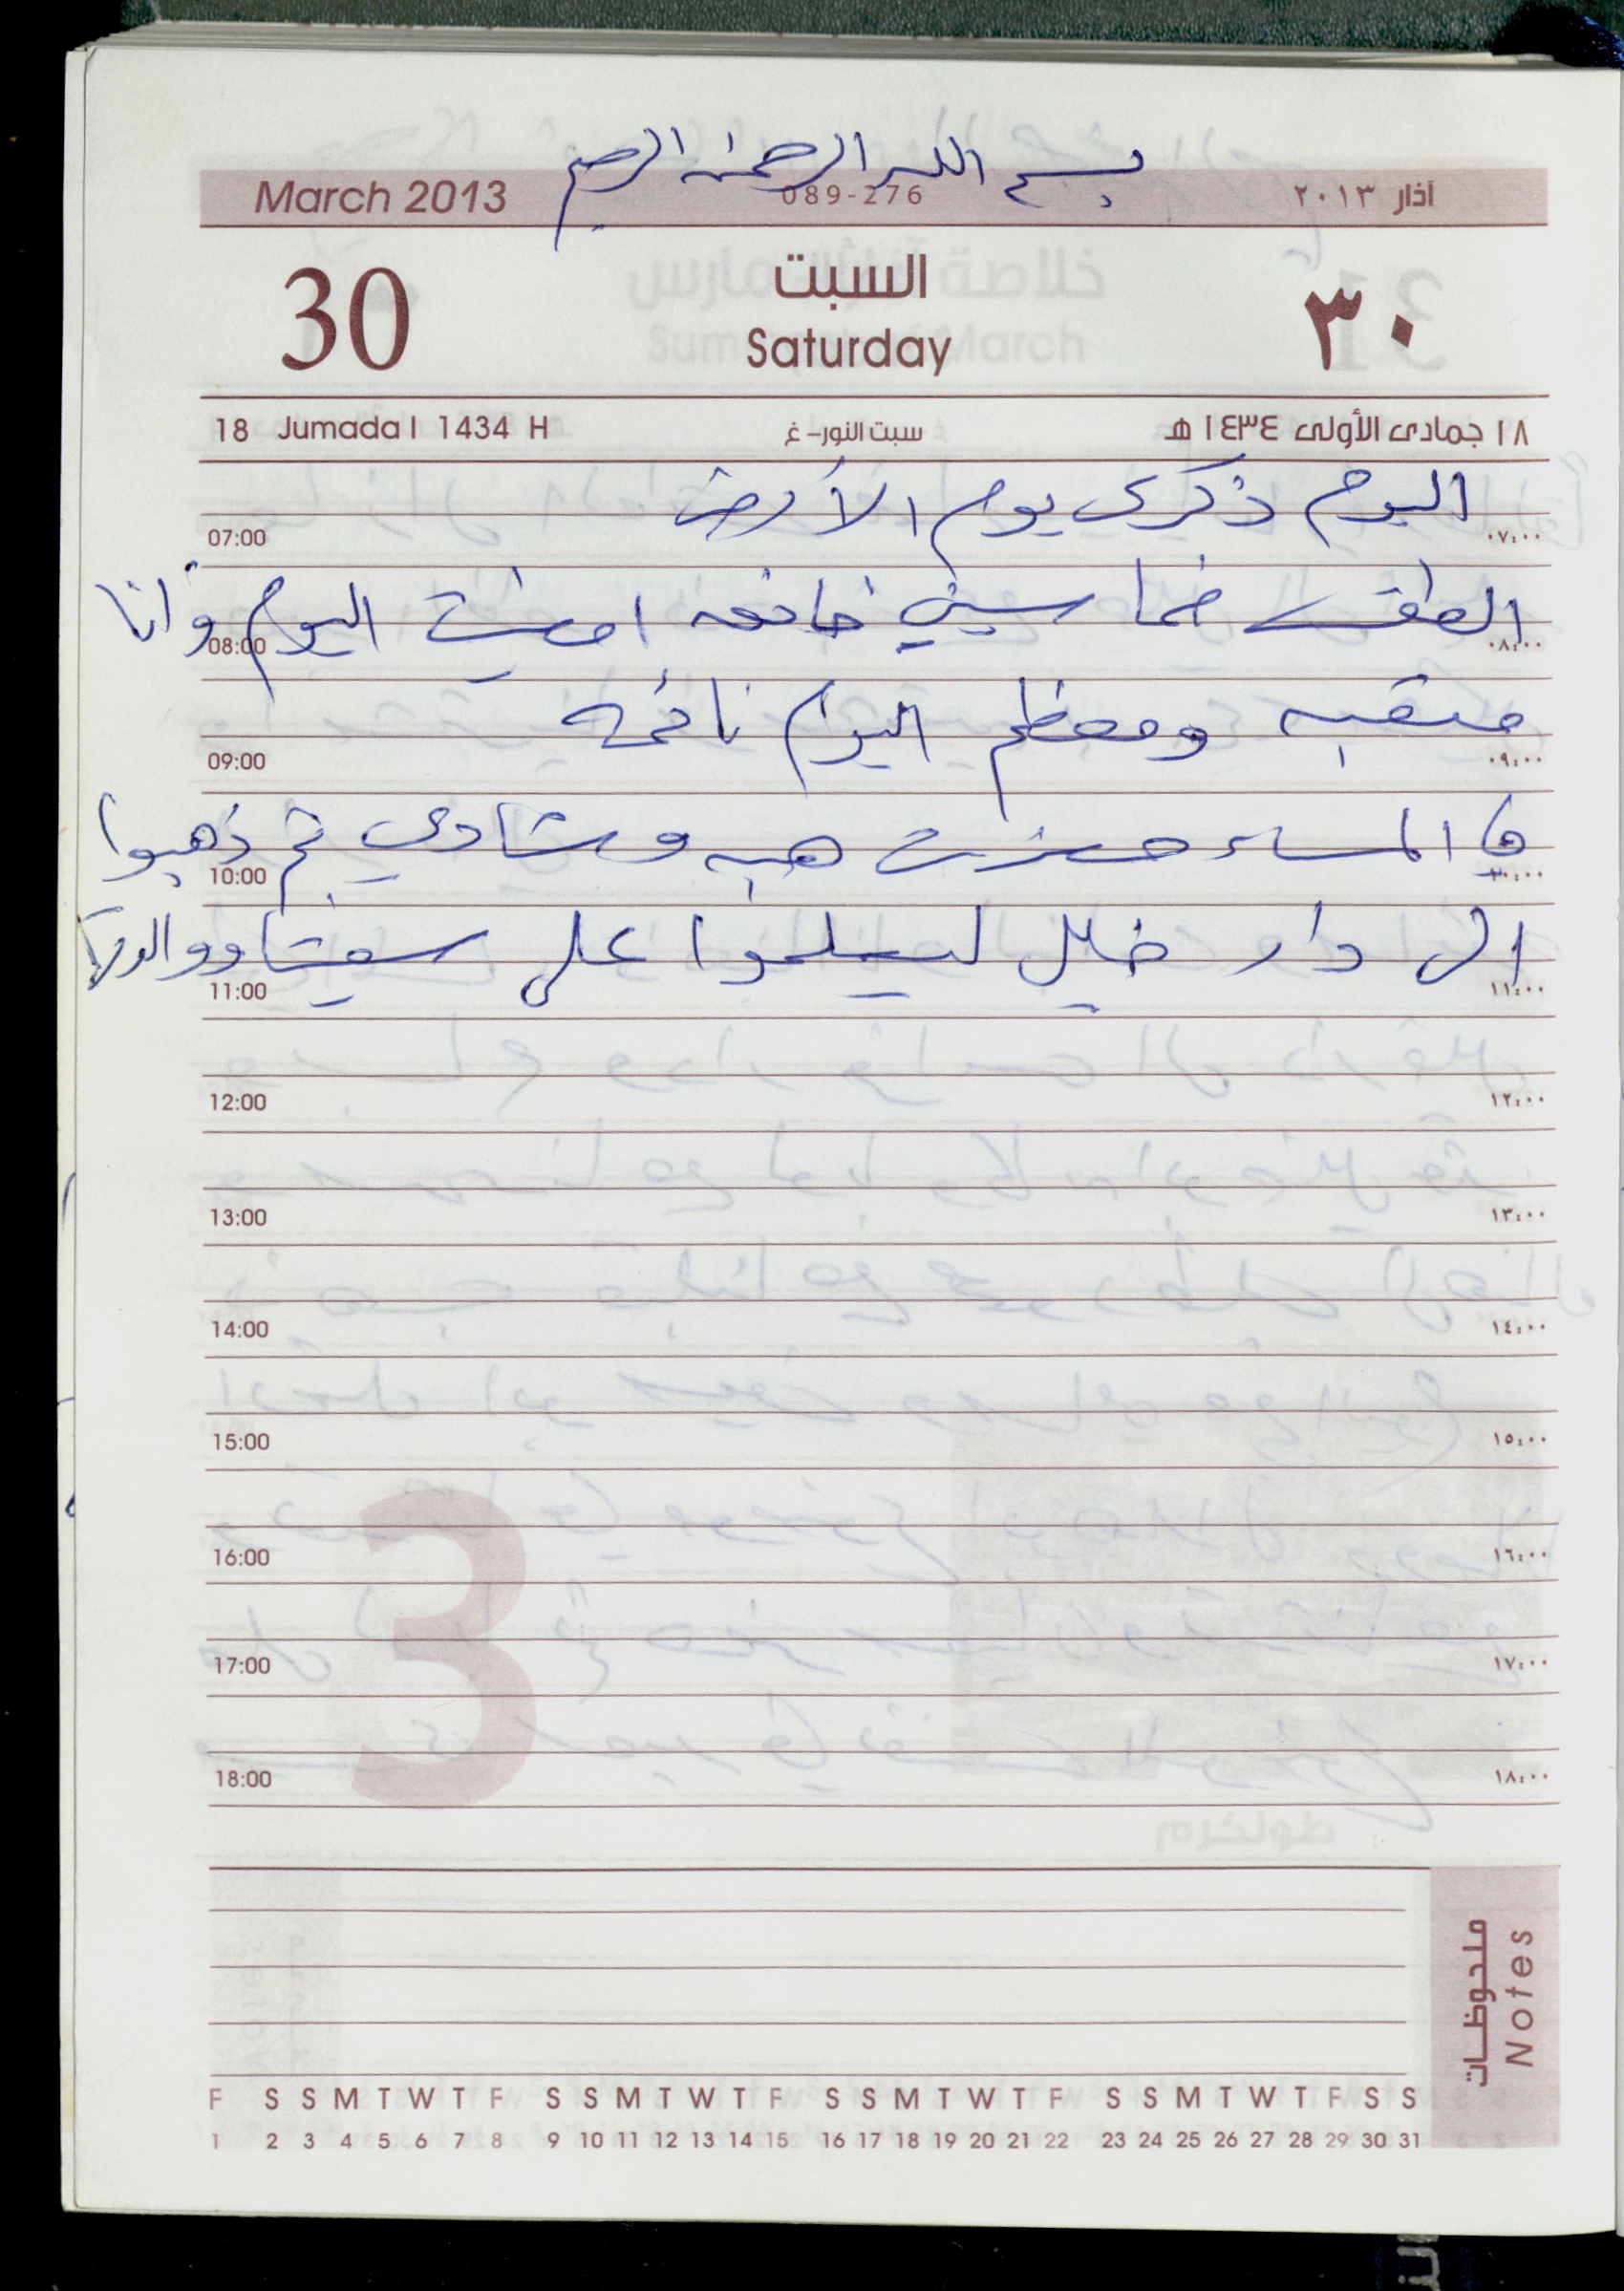 بسم الله الرحمن الرحيم
March 2013 089-276 آذار ٢٠١٣
30 السبت ٣٠
Saturday
18 Jumada I 1434 H سبت النور-غ ١٨ جمادى الأولى ١٤٣٤ هـ
اليوم ذكرى يوم الأرض
07:00 ٠٧:٠٠
الطقس خماسيني خانقه امضيت اليوم وأنا
08:00 ٠٨:٠٠
متعبه ومعظم اليوم نائمه
09:00 ٠٩:٠٠
في المساء حضرت هبه وشادي ثم ذهبوا
10:00 ١٠:٠٠
الى دار خليل ليسلموا على
11:00 ١١:٠٠
12:00 ١٢:٠٠
13:00 ١٣:٠٠
14:00 ١٤:٠٠
15:00 ١٥:٠٠
16:00 ١٦:٠٠
17:00 ١٧:٠٠
18:00 ١٨:٠٠
3
ملحوظات
Notes
F S S M T W T F S S M T W T F S S M T W T F S S M T W T F S S
1 2 3 4 5 6 7 8 9 10 11 12 13 14 15 16 17 18 19 20 21 22 23 24 25 26 27 28 29 30 31